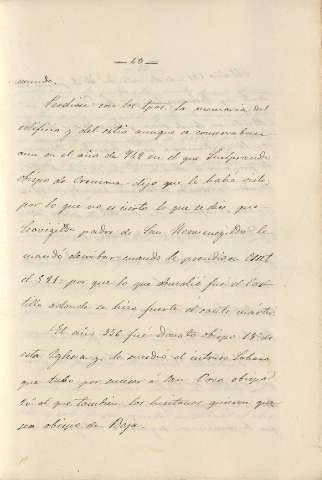 — 40 —
mundo.
Perdiose con los tpos. la memoria del
edificio y del sitio aunque se conservaban
aun en el año de 962 en el que Luitprando
obispo de Cremona dejo que le habia visto,
por lo que no es cierto lo que se dice, que
Leovigildo padre de San Hermenegildo le
mandó derribar cuando le prendió en
el 583: por que lo que fué el Cas-
tillo adonde se hizo fuerte el santo mártir.
El año 256 fué Donato obispo 18 de
esta Yglesia y le sucedió el intruso Sabino
que tubo por sucesor á San obispo
20 al que tambien los lusitanos quieren que
sea obispo de Beja.